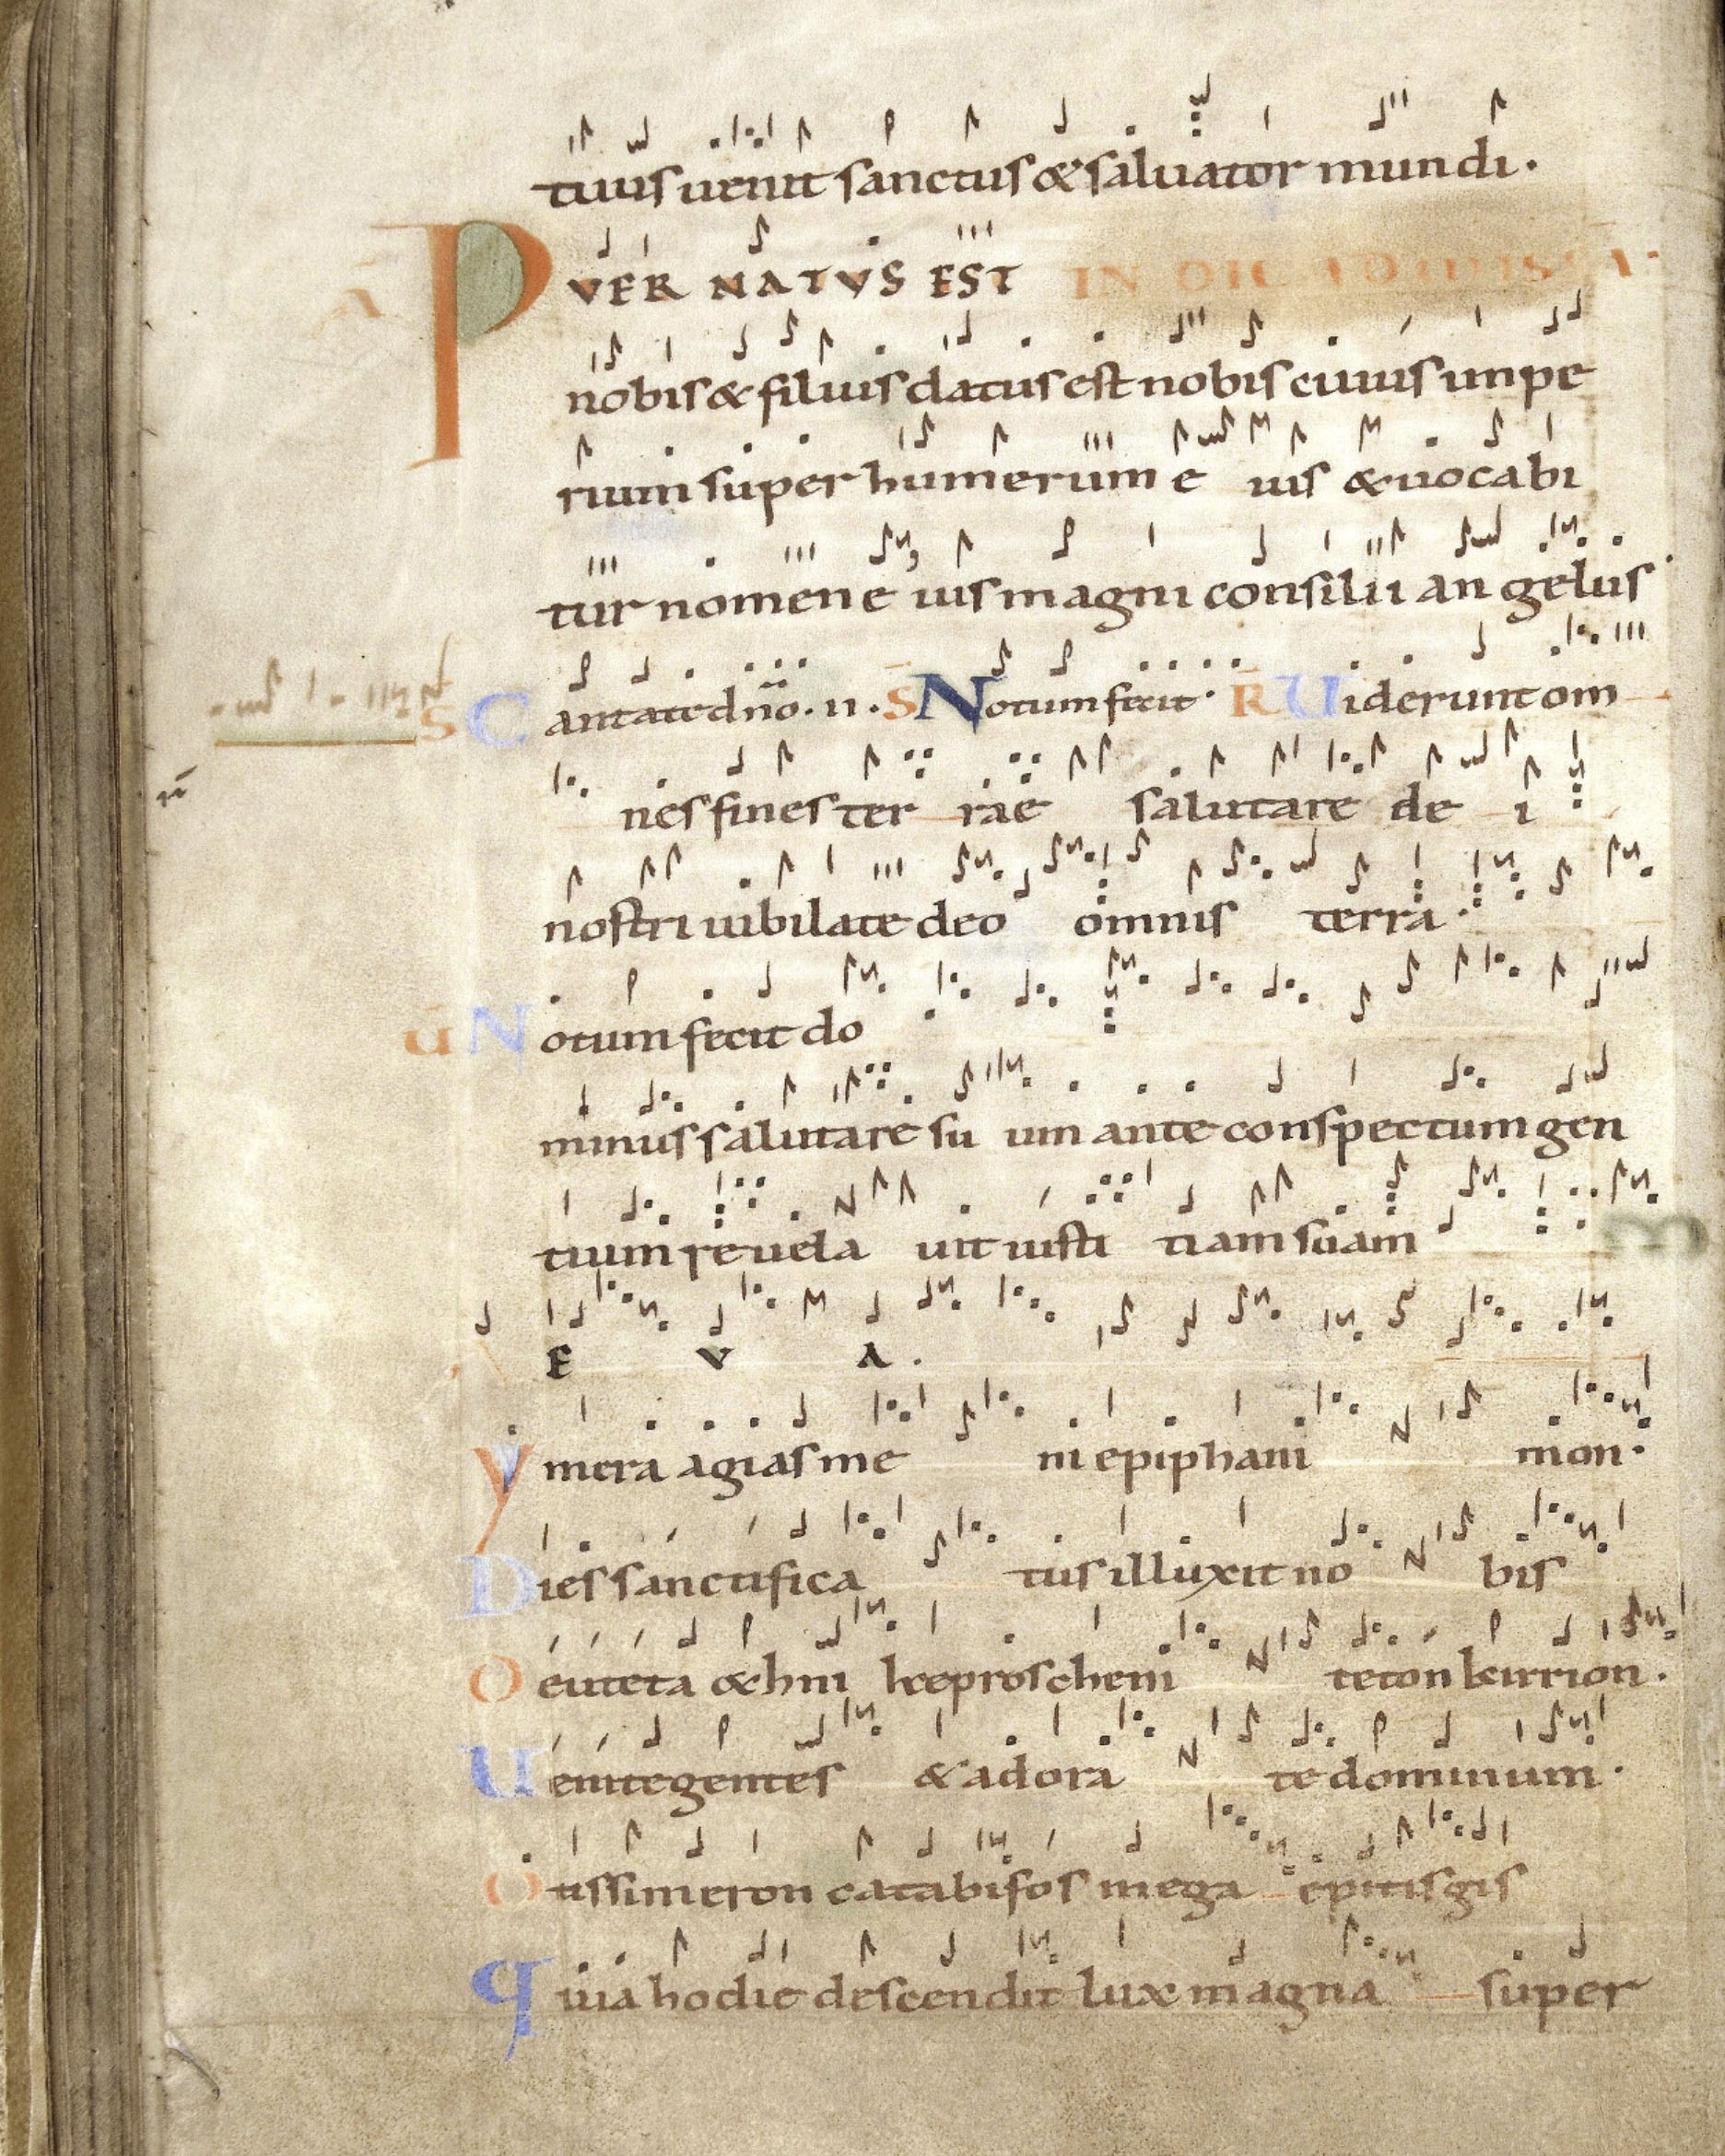 tiuus uenit sanctus & saluator mundi.
PVER NATVS EST IN DIE AD MISSA
nobis & filius datus est nobis cuius impe
rium super humerum e ius & uocabi
tur nomen e ius magni consilii an gelus
S Cantate dño. ii. S Notum fecit. R Uiderunt om
nes fines ter rae salutare de i
nostri iubilate deo omnis terra.
U Notum fecit do
minus salutare su um ante conspectum gen
tium reuela uit iusti tiam suam
E V A.
Ymera agias me ni epiphani mon.
Dies sanctifica tus illuxit no bis
O euteta & hni keproscheni teton kirrion.
Uenite gentes & adora te dominum.
Otissimeron catabifos mega epitis gis
quia hodie descendit lux magna super